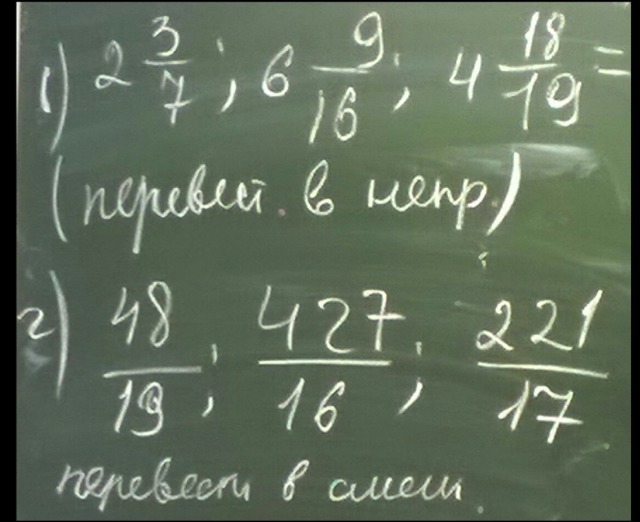 1) 2 3/7 ; 6 9/16 ; 4 18/19 =
(перевест. в непр.)
2) 48/19 ; 427/16 ; 221/17
перевести в смеш.